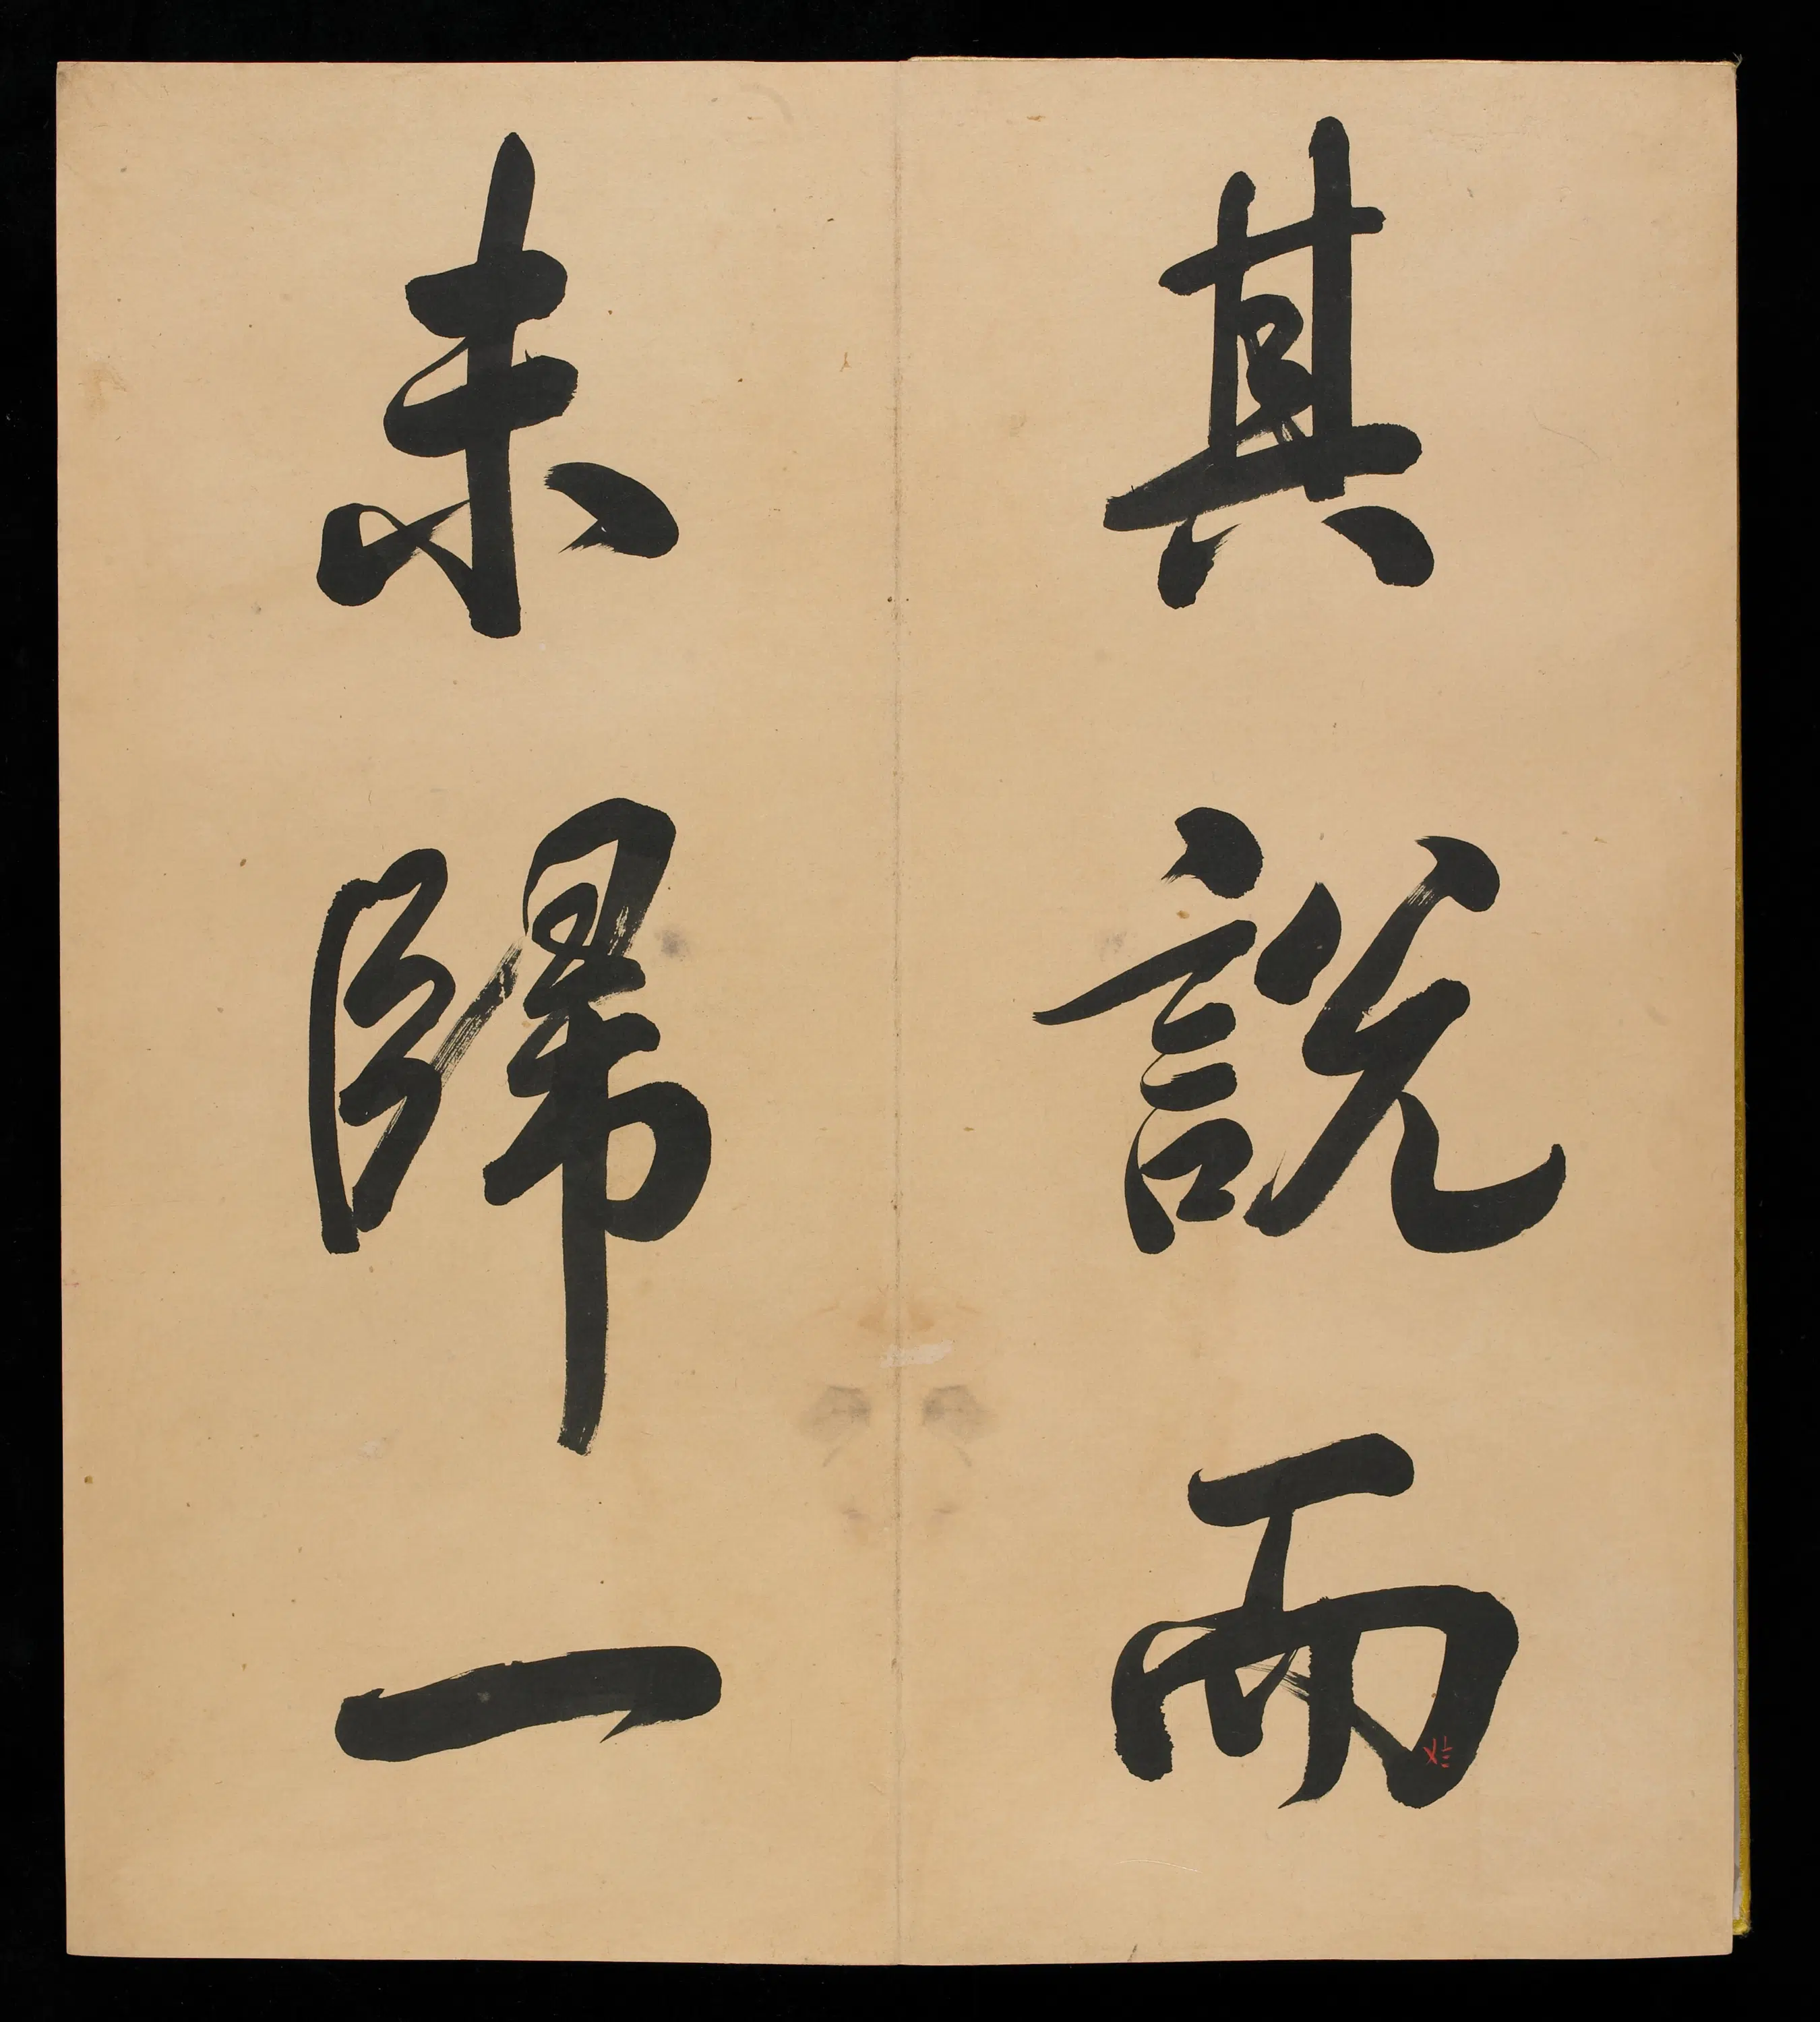 其說而
未歸一